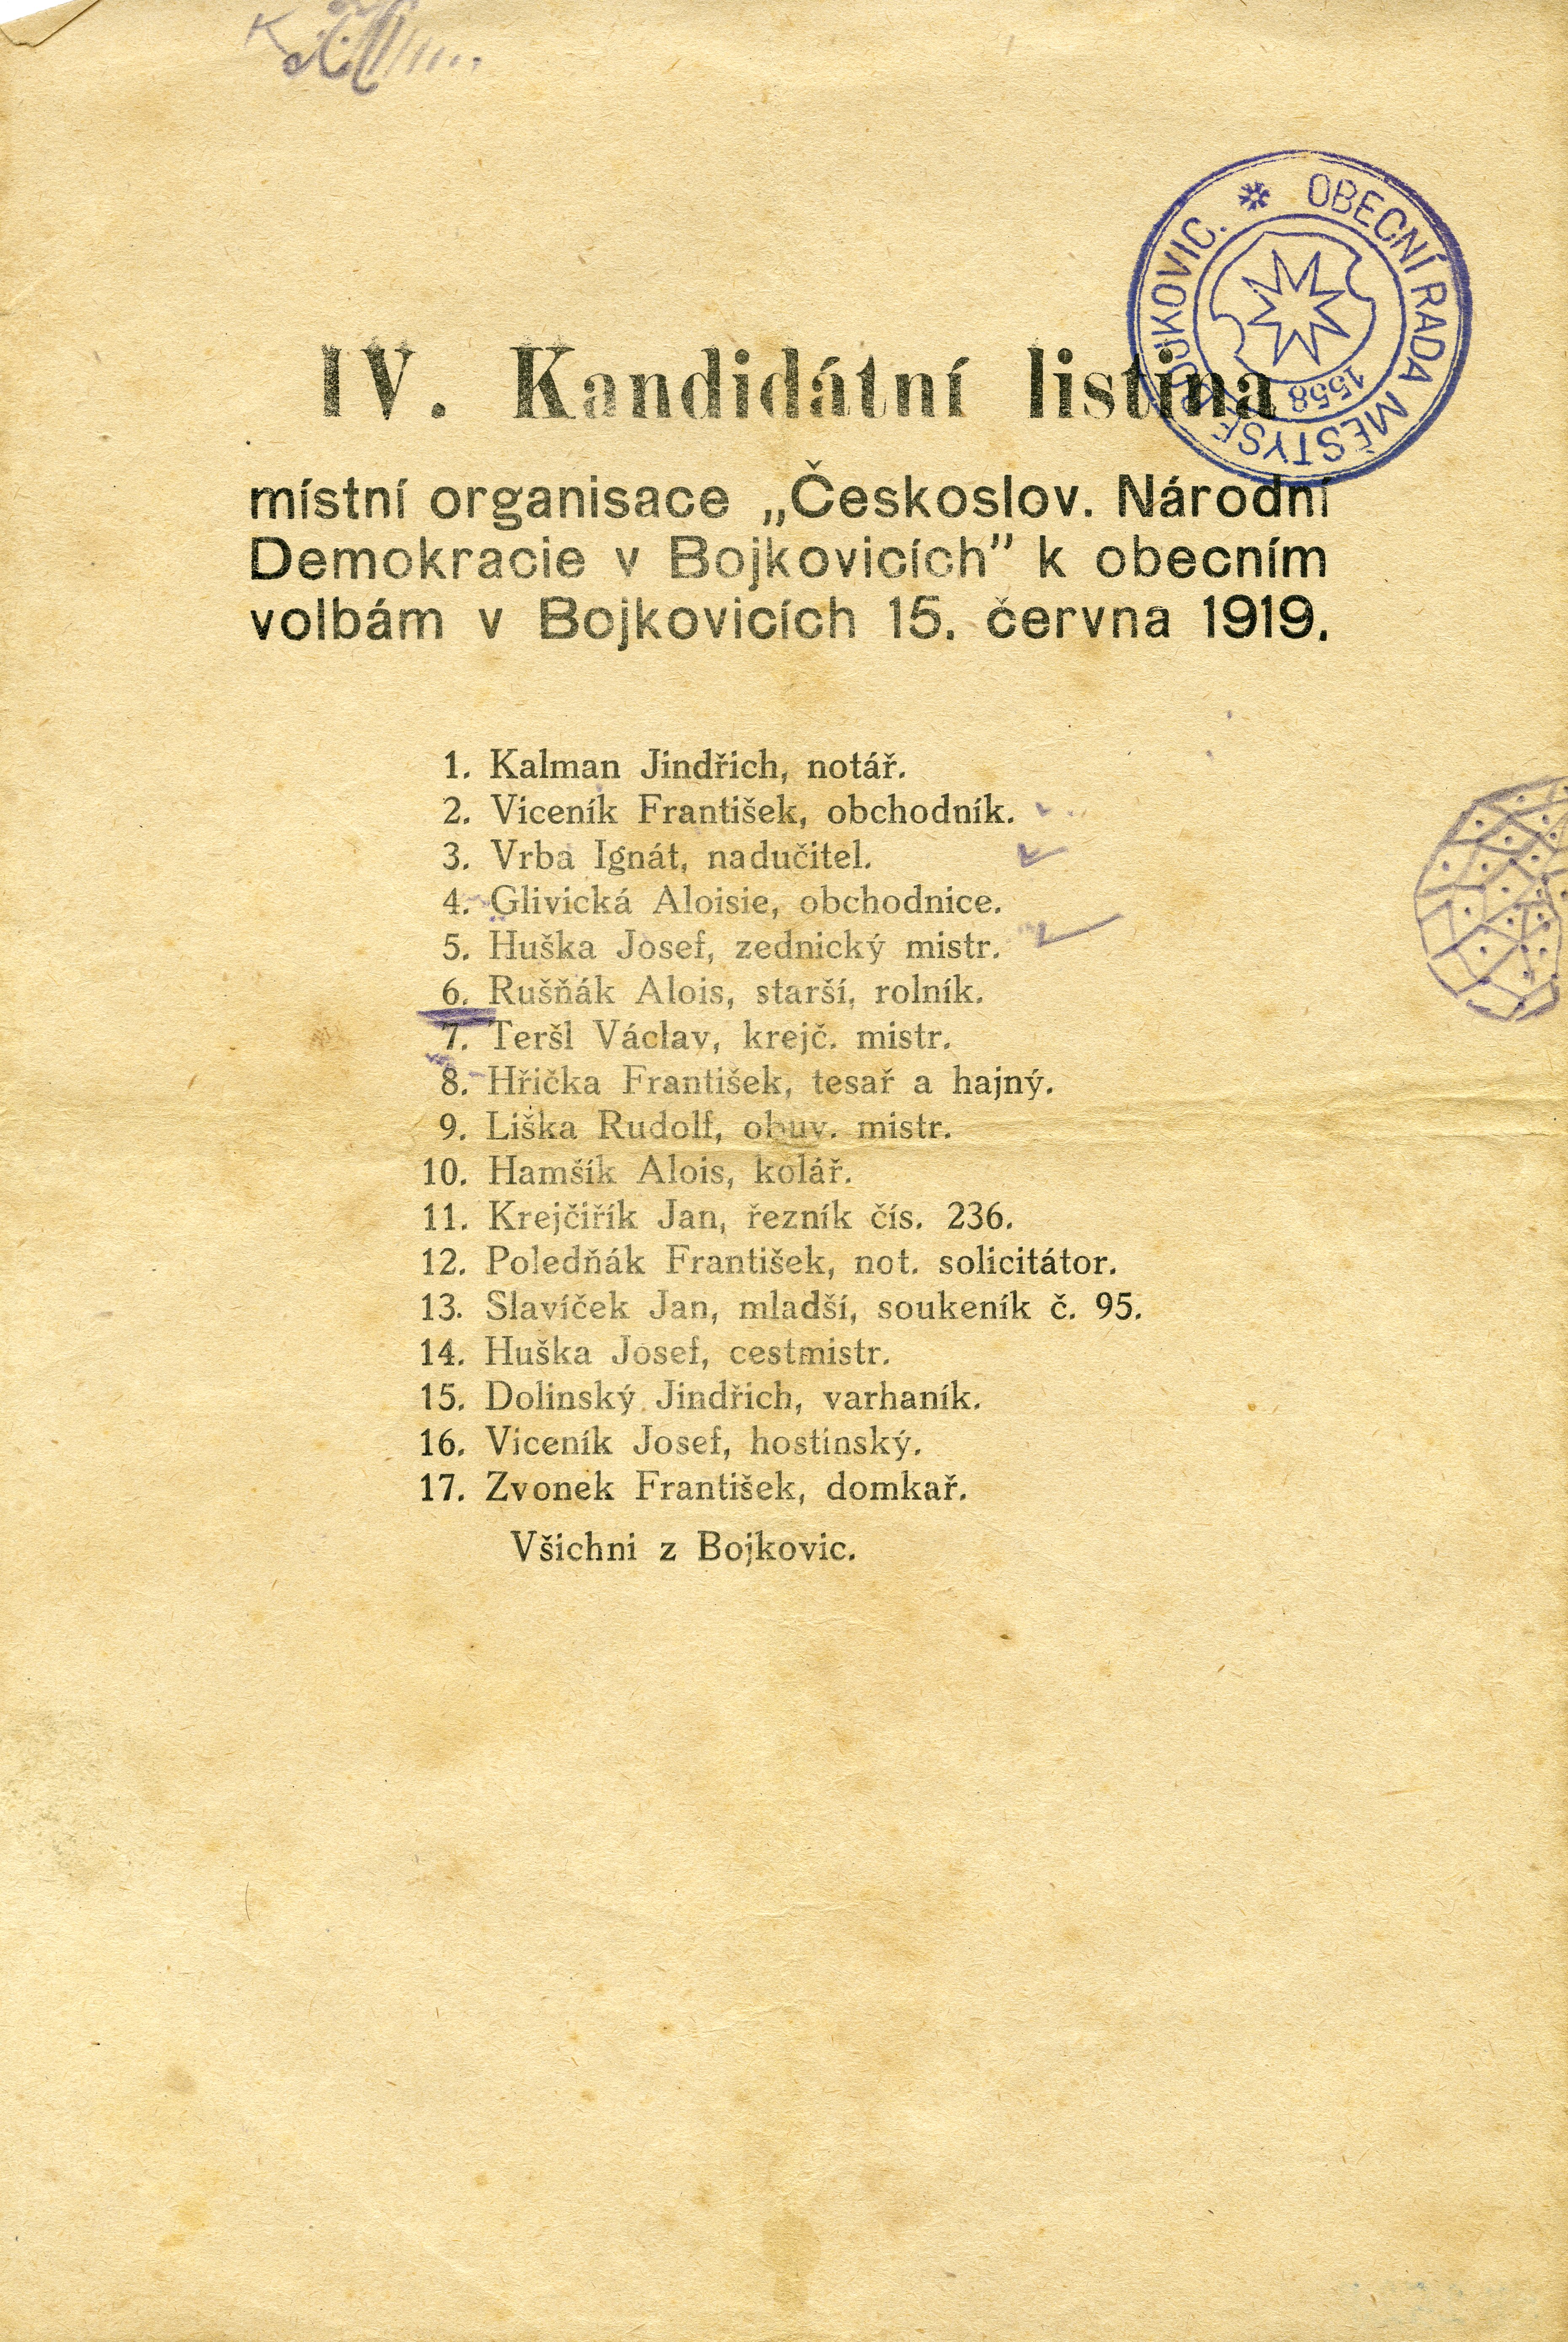 OBECNÍ RADA MĚSTYSE BOJKOVIC.
1558
IV. Kandidátní listina
místní organisace „Českoslov. Národní
Demokracie v Bojkovicích” k obecním
volbám v Bojkovicích 15. června 1919.
1. Kalman Jindřich, notář.
2. Viceník František, obchodník.
3. Vrba Ignát, nadučitel.
4. Glivická Aloisie, obchodnice.
5. Huška Josef, zednický mistr.
6. Rušňák Alois, starší, rolník.
7. Teršl Václav, krejč. mistr.
8. Hřička František, tesař a hajný.
9. Liška Rudolf, obuv. mistr.
10. Hamšík Alois, kolář.
11. Krejčiřík Jan, řezník čís. 236.
12. Poledňák František, not. solicitátor.
13. Slavíček Jan, mladší, soukeník č. 95.
14. Huška Josef, cestmistr.
15. Dolinský Jindřich, varhaník.
16. Viceník Josef, hostinský.
17. Zvonek František, domkař.
Všichni z Bojkovic.